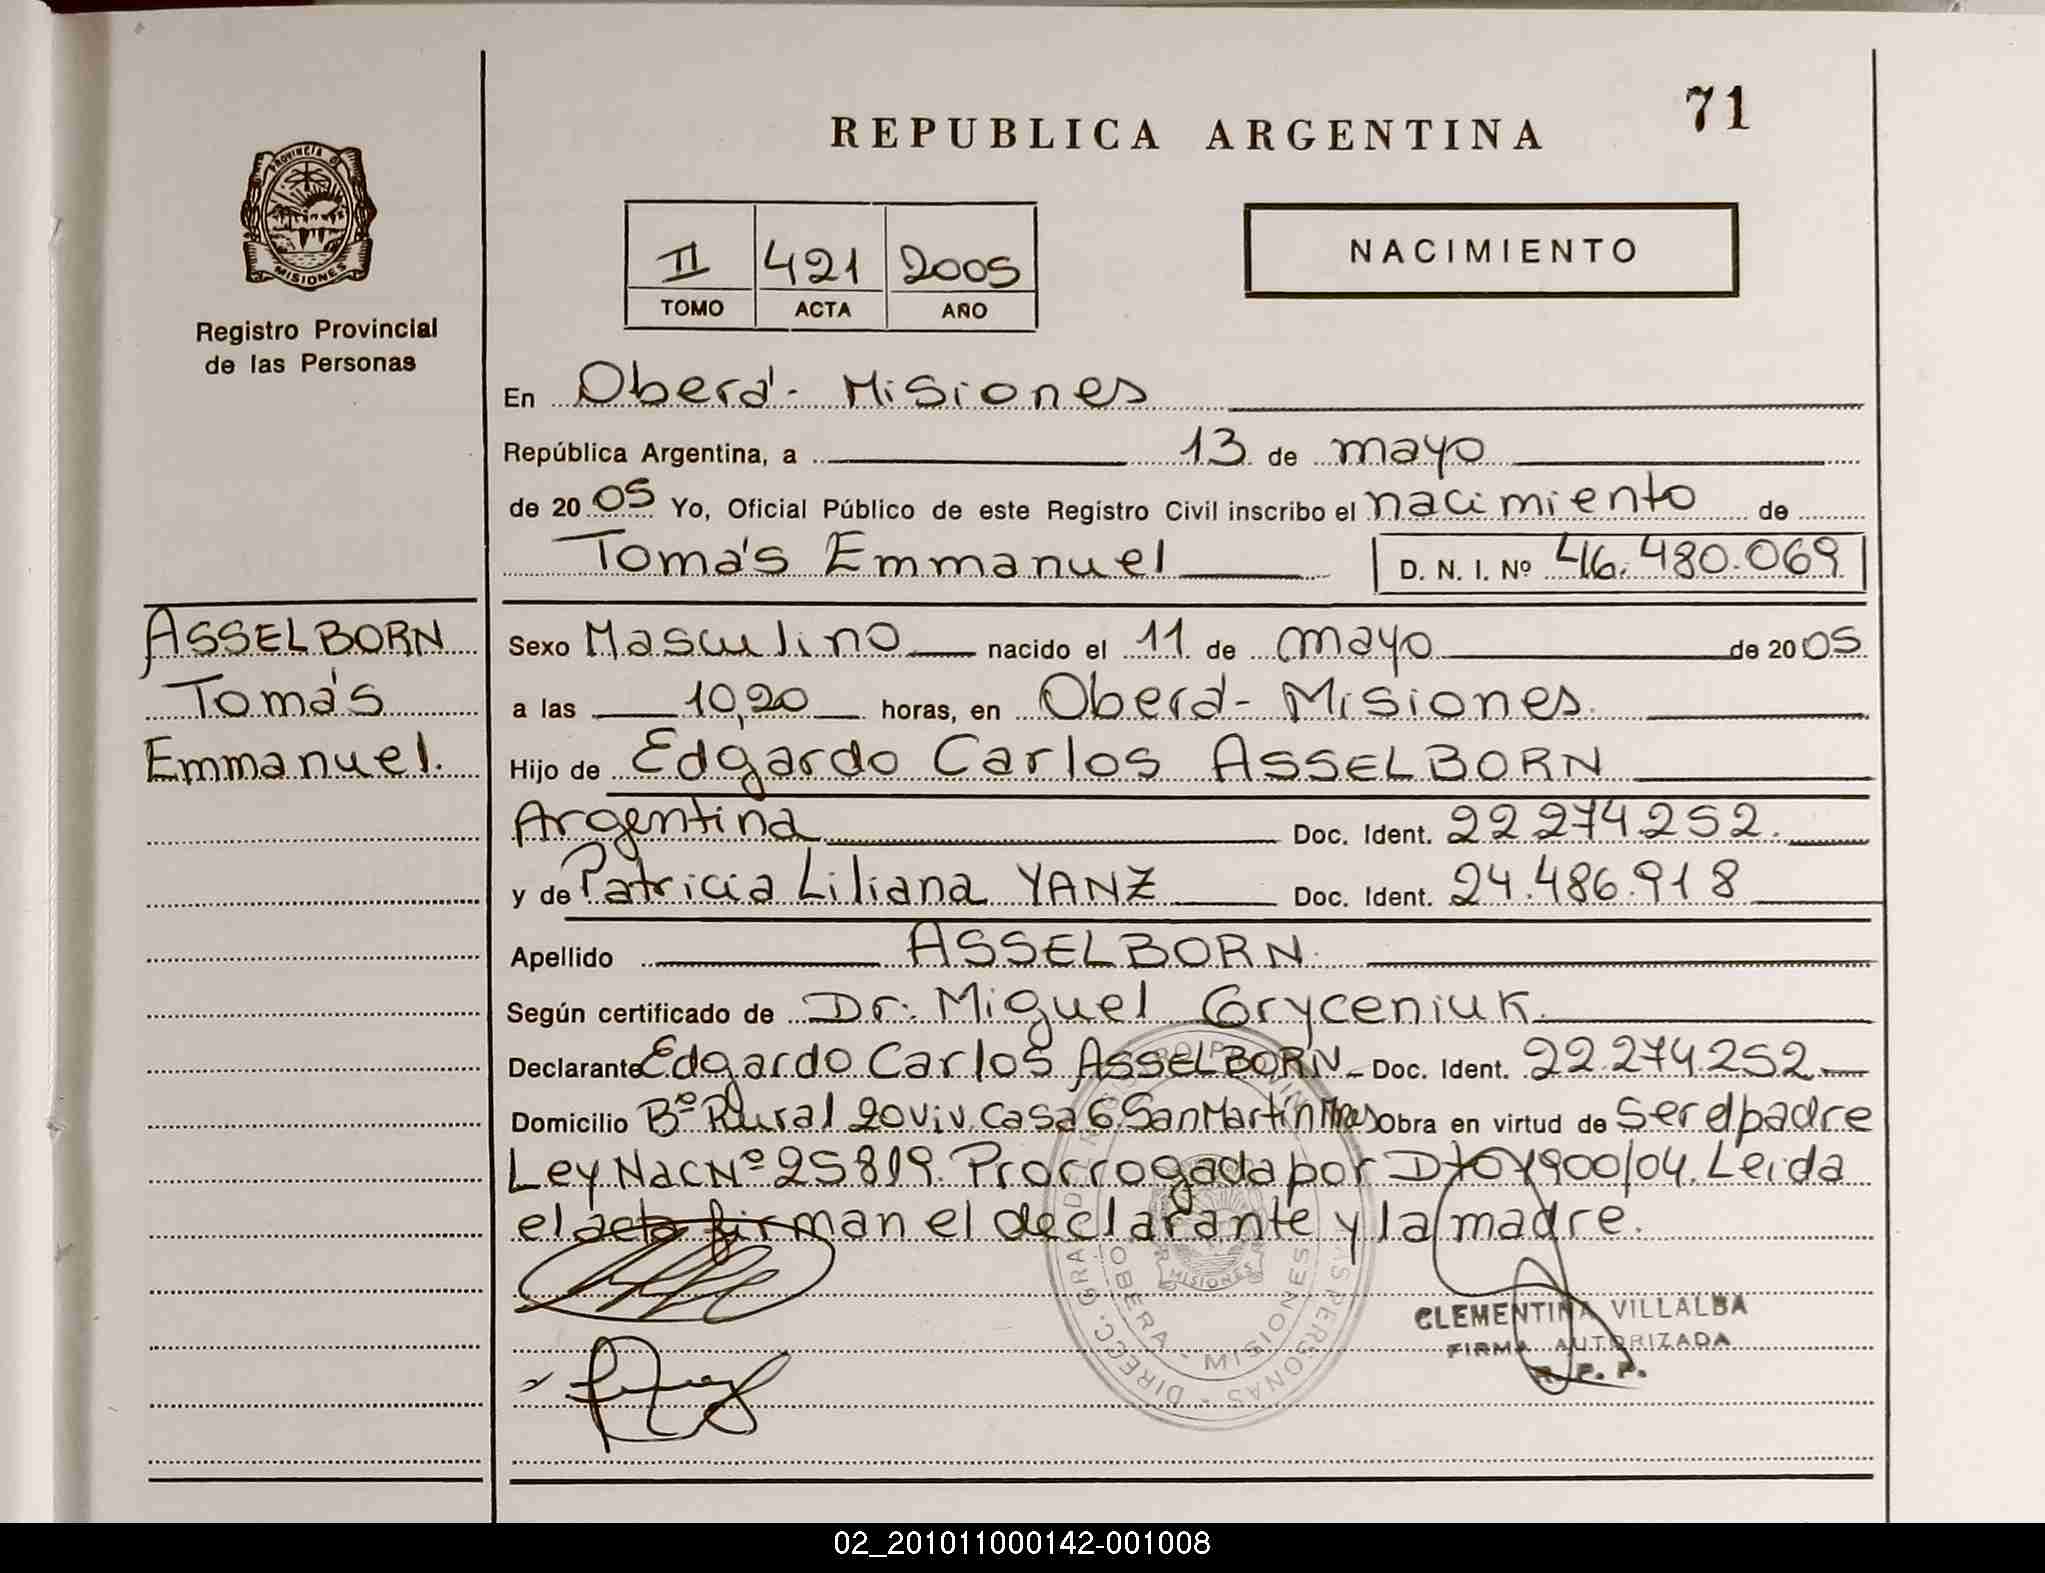 REPUBLICA ARGENTINA
71
PROVINCIA DE
MISIONES
Registro Provincial
de las Personas
II 421 2005
TOMO ACTA AÑO
NACIMIENTO
En Oberá - Misiones
República Argentina, a 13 de mayo
de 2005 Yo, Oficial Público de este Registro Civil inscribo el nacimiento de
Tomás Emmanuel D. N. I. Nº 46.480.069
ASSELBORN
Tomás
Emmanuel.
Sexo Masculino nacido el 11 de mayo de 2005
a las 10,20 horas, en Oberá - Misiones.
Hijo de Edgardo Carlos ASSELBORN
Argentina Doc. Ident. 22.274.252.
y de Patricia Liliana YANZ Doc. Ident. 24.486.918
Apellido ASSELBORN.
Según certificado de Dr. Miguel Gryceniuk.
Declarante Edgardo Carlos ASSELBORN Doc. Ident. 22.274.252
Domicilio Bº Rural 20 viv. Casa 6. San Martín Mnes Obra en virtud de ser el padre
Ley Nac Nº 25819. Prorrogada por Dto 1900/04. Leida
el acta firman el declarante y la madre.
CLEMENTINA VILLALBA
FIRMA AUTORIZADA
R. P. P.
OBERA - MISIONES
MISIONES
02_201011000142-001008